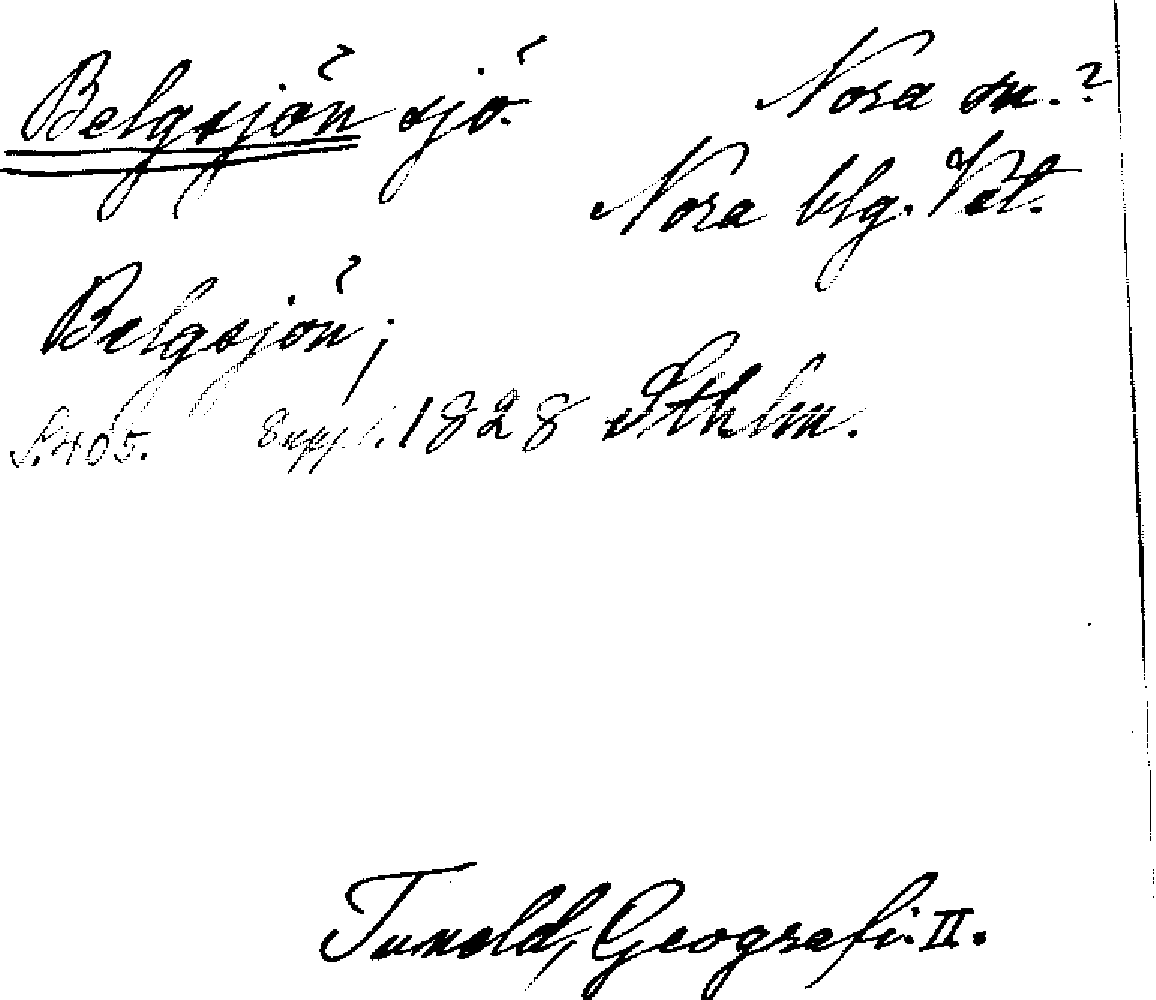 Belgsjön sjö. Nora sn.?
Nora blg. Vstl.
Belgsjön;
S. 405. Uppl. 1828 Sthlm.
Tuneld, Geografi. II.